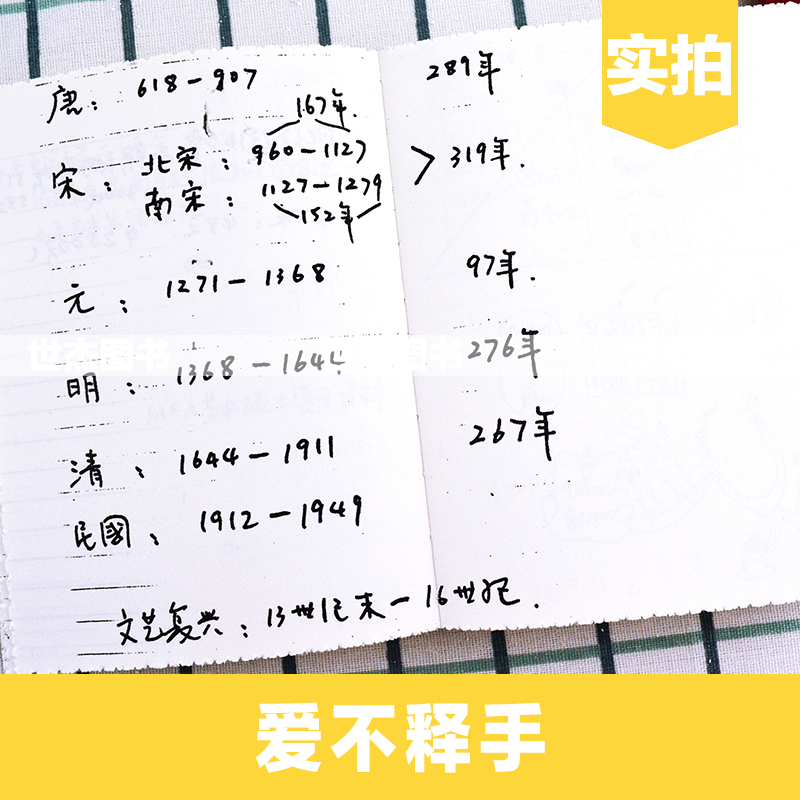 实拍
唐：618－907 289年
167年.
宋：北宋：960－1127
南宋：1127－1279 > 319年.
152年
元：1271－1368 97年.
世杰图书
明：1368－1644 276年
清：1644－1911 267年
民國：1912－1949
文艺复兴：13世纪末－16世纪.
爱不释手